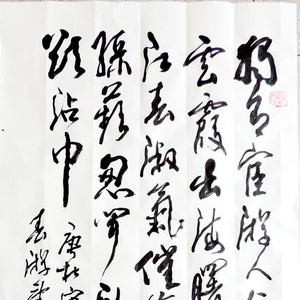 獨有宦游人
雲霞出海曙
江春淑氣催
綠蘋忽聞歌
欲沾巾 唐杜審
春游